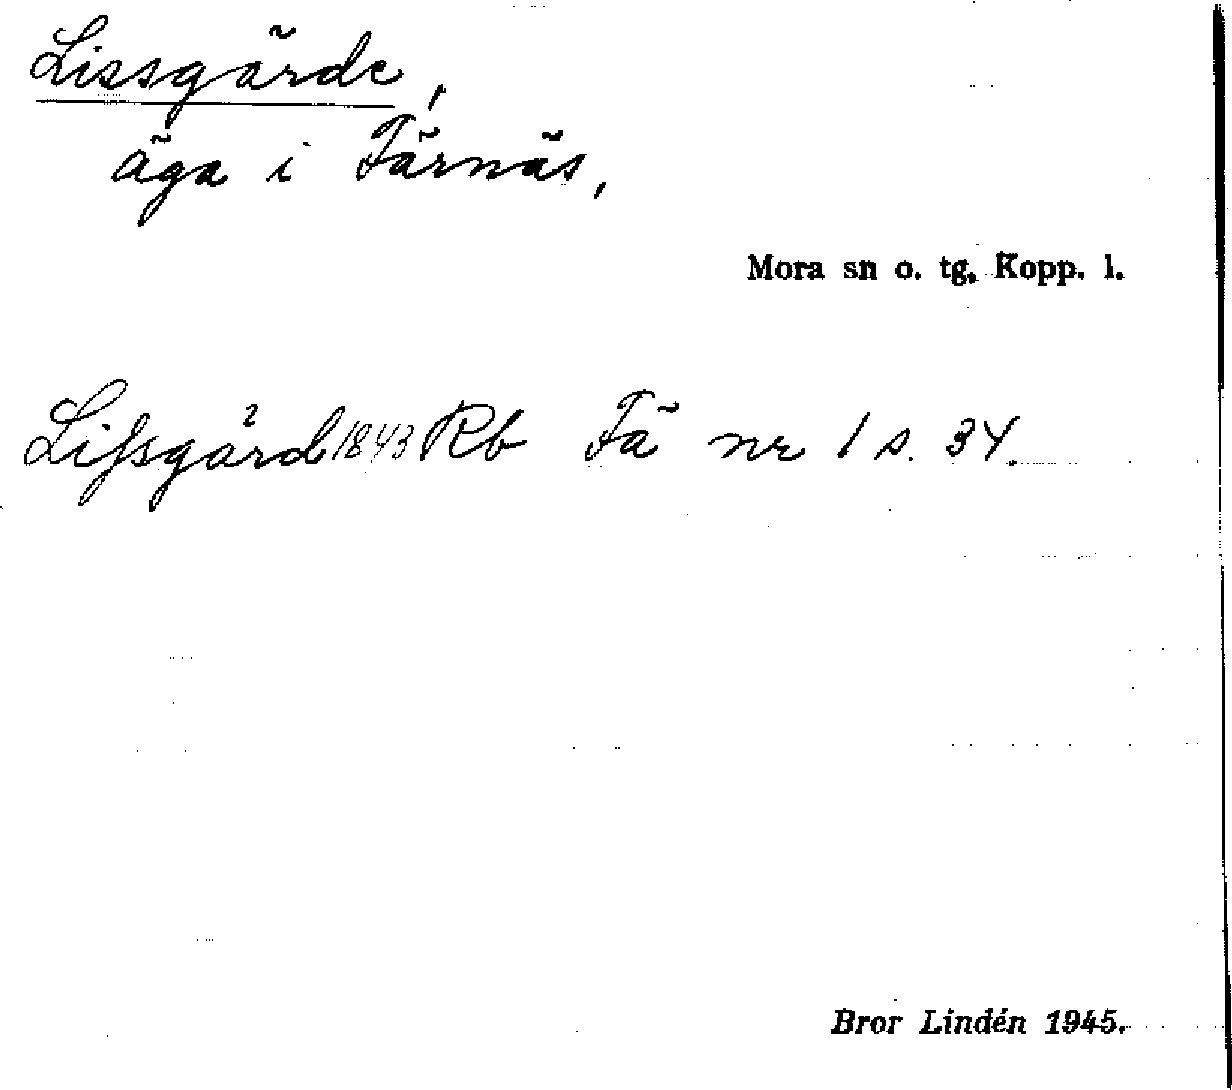 Lissgärde,
äga i Färnäs,
Mora sn o. tg. Kopp. l.
Liſsgård 1843 Rb Fä nr 1 s. 34.
Bror Lindén 1945.